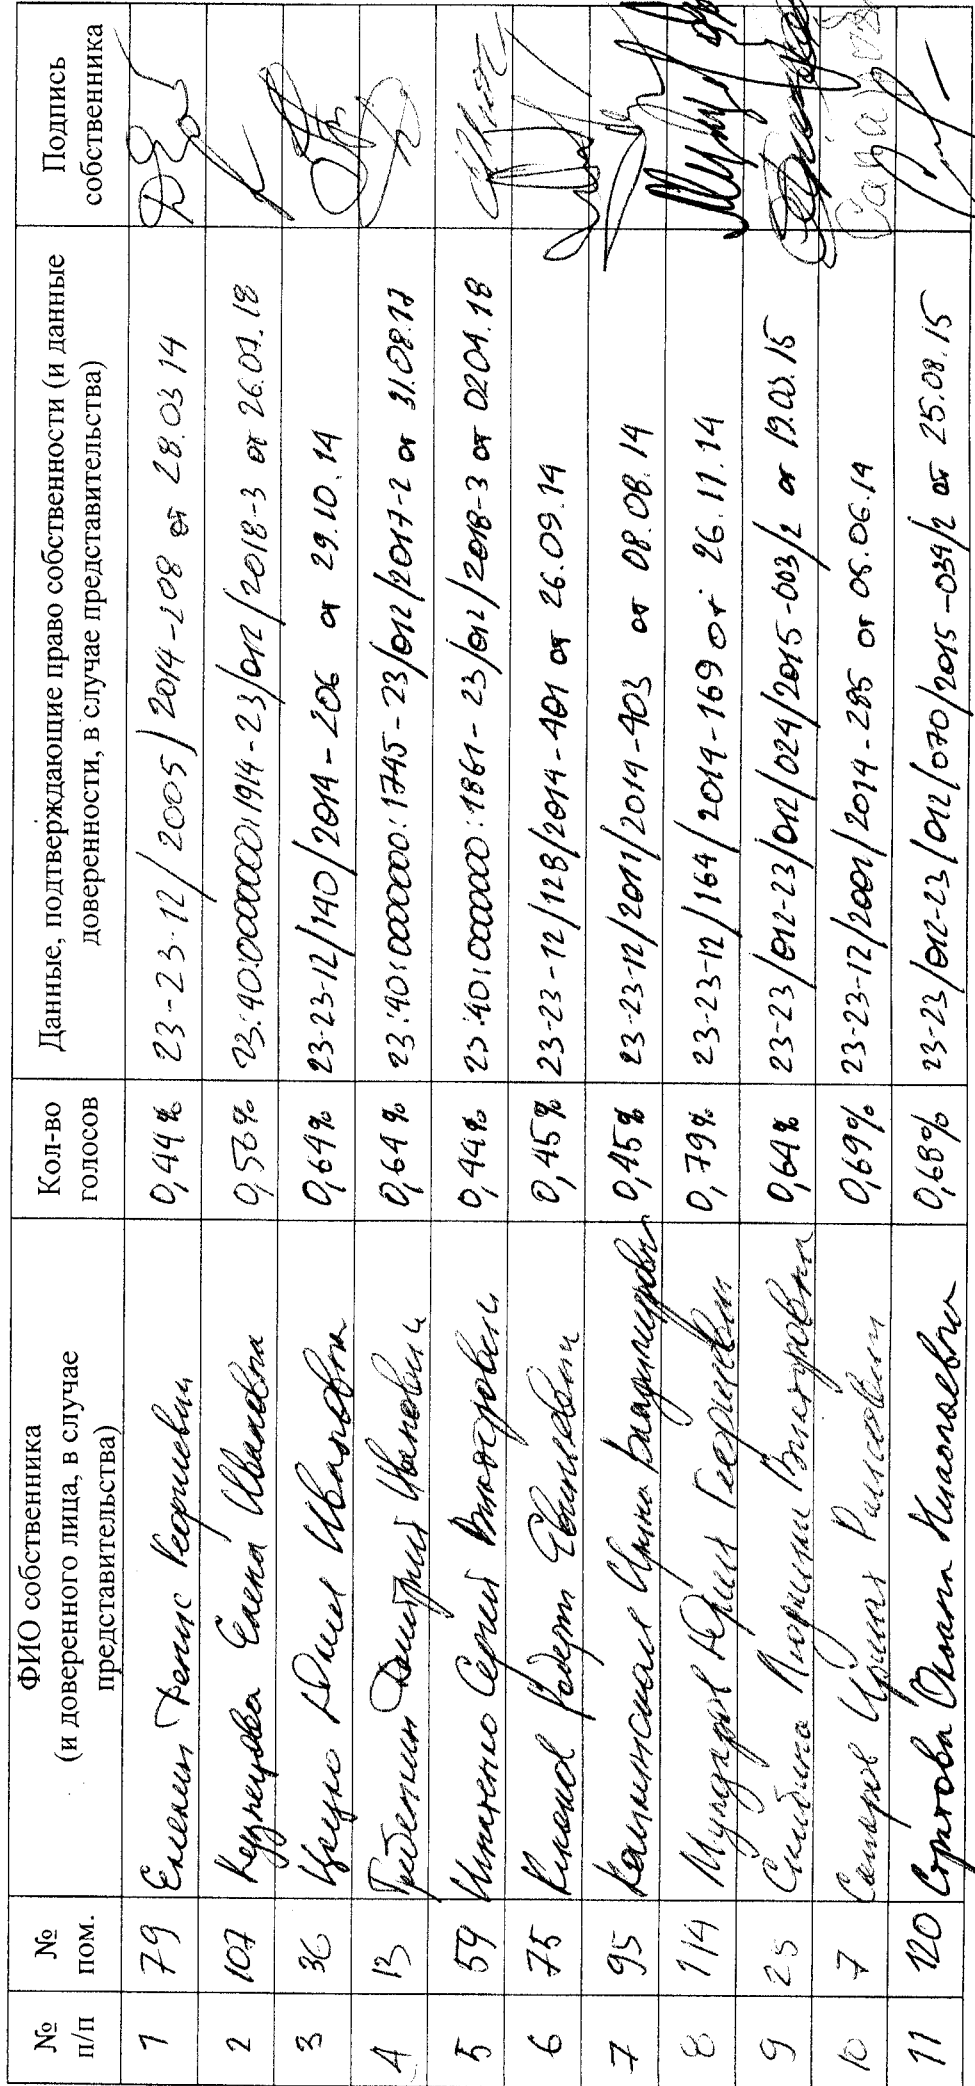 № п/п
№ пом.
ФИО собственника (и доверенного лица, в случае представительства)
Кол-во голосов
Данные, подтверждающие право собственности (и данные доверенности, в случае представительства)
Подпись собственника
1 79 Денис Георгиевич 0,44% 23-23-12/2005/2014-208 от 28.03 14
2 107 Кузнецова Елена Ивановна 0,58% 23:40:0000000:1914-23/012/2018-3 от 26.07.18
3 36 Ивановна 0,64% 23-23-12/140/2014-206 от 29.10.14
4 13 Гребенкин Дмитрий Иванович 0,64% 23:40:0000000:1745-23/012/2017-2 от 31.08.17
5 59 Сергей Викторович 0,44% 23:40:0000000:1861-23/012/2018-3 от 0204.18
6 75 Роберт Евгеньевич 0,45% 23-23-12/128/2014-401 от 26.09.14
7 95 Ирина Владимировна 0,45% 23-23-12/2011/2014-403 от 08.08.14
8 114 Юрий Георгиевич 0,79% 23-23-12/164/2014-169 от 26.11.14
9 25 Скибина Викторовна 0,64% 23-23/012-23/012/024/2015-003/2 от 19.03.15
10 7 0,69% 23-23-12/2001/2014-285 от 05.06.14
11 120 Оксана Николаевна 0,68% 23-23/012-23/012/070/2015-034/2 от 25.08.15